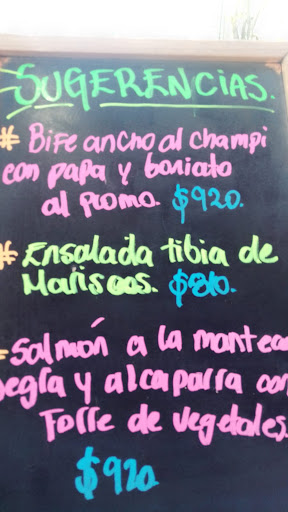 SUGERENCIAS.
* Bife ancho al champi
con papa y boniato
al plomo. $920.
* Ensalada tibia de
Mariscos. $810.
Salmón a la mantec
negra y alcaparra con
Torre de vegetales.
$920